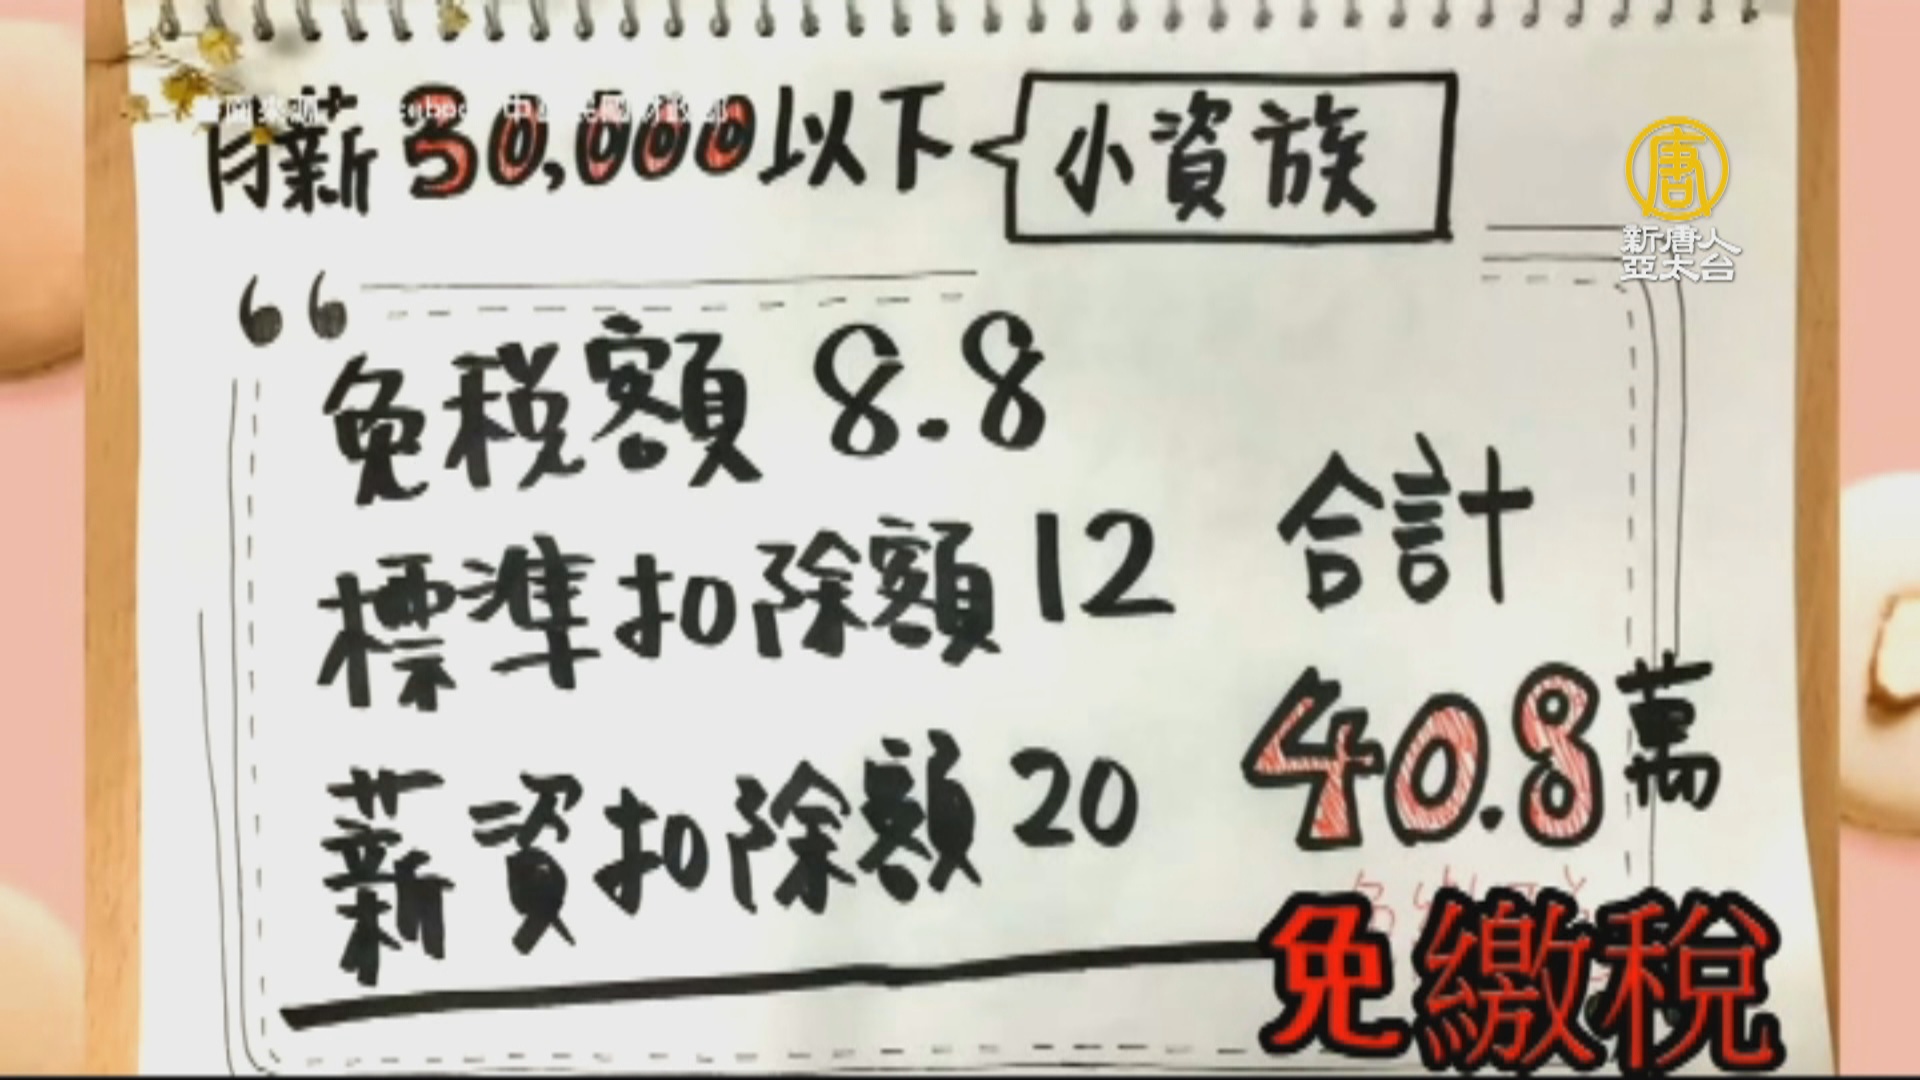 月薪30,000以下 小資族
新唐人
亞太台
免稅額 8.8
標準扣除額 12
合計
薪資扣除額 20
40.8萬
免繳稅